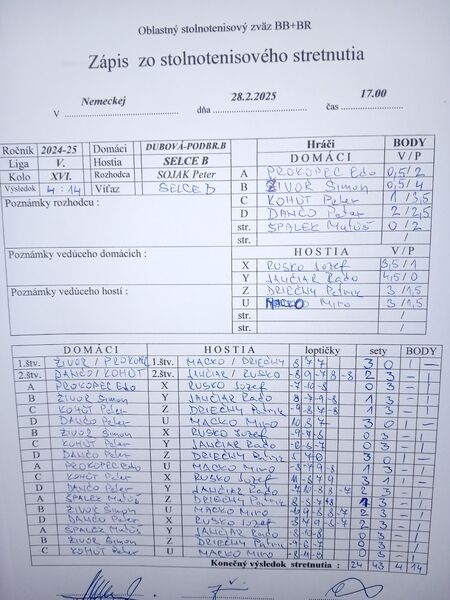 Oblastný stolnotenisový zväz BB+BR
Zápis zo stolnotenisového stretnutia
V Nemeckej dňa 28.2.2025 čas 17.00
Ročník 2024-25 Domáci DUBOVÁ-PODBR.B
Liga V. Hostia SELCE B
Kolo XVI. Rozhodca SOJAK Peter
Výsledok 4:14 Víťaz SELCE B
Poznámky rozhodcu :
Poznámky vedúceho domácich :
Poznámky vedúceho hostí :
Hráči BODY
DOMÁCI V / P
A PROKOPEC Edo 0,5/2
B ŽIVOR Simon 0,5/4
C KOHÚT Peter 1/3,5
D DANČO Peter 2/2,5
str. ŠPALEK Matúš 0/2
str.
HOSTIA V / P
X RUSKO Jozef 3,5/1
Y JANČIAR Rado 4,5/0
Z DRIEČNY Patrik 3/1,5
U MACKO Miro 3/1,5
str. /
str. /
DOMÁCI HOSTIA loptičky sety BODY
1.štv. ŽIVOR / PROKOPEC 1.štv. MACKO / DRIEČNY 8 7 7 3 0 1 -
2.štv. DANČO / KOHÚT 2.štv. JANČIAR / RUSKO 2 3 - 1
A PROKOPEC Edo X RUSKO Jozef -7-10-8 0 3 - 1
B ŽIVOR Simon Y JANČIAR Rado 1 3 - 1
C KOHÚT Peter Z DRIEČNY Patrik 1 3 - 1
D DANČO Peter U MACKO Miro 3 0 1 -
B ŽIVOR Simon X RUSKO Jozef 0 3 - 1
C KOHÚT Peter Y JANČIAR Rado 0 3 - 1
D DANČO Peter Z DRIEČNY Patrik 3 0 1 -
A PROKOPEC Edo U MACKO Miro 1 3 - 1
C KOHÚT Peter X RUSKO Jozef 3 1 1 -
D DANČO Peter Y JANČIAR Rado 2 3 - 1
A ŠPALEK Matúš Z DRIEČNY Patrik 3 - 1
B ŽIVOR Simon U MACKO Miro 2 3 - 1
D DANČO Peter X RUSKO Jozef 2 3 - 1
A ŠPALEK Matúš Y JANČIAR Rado 0 3 - 1
B ŽIVOR Simon Z DRIEČNY Patrik 0 3 - 1
C KOHÚT Peter U MACKO Miro -8-11-8 0 3 - 1
Konečný výsledok stretnutia : 24 43 4 14